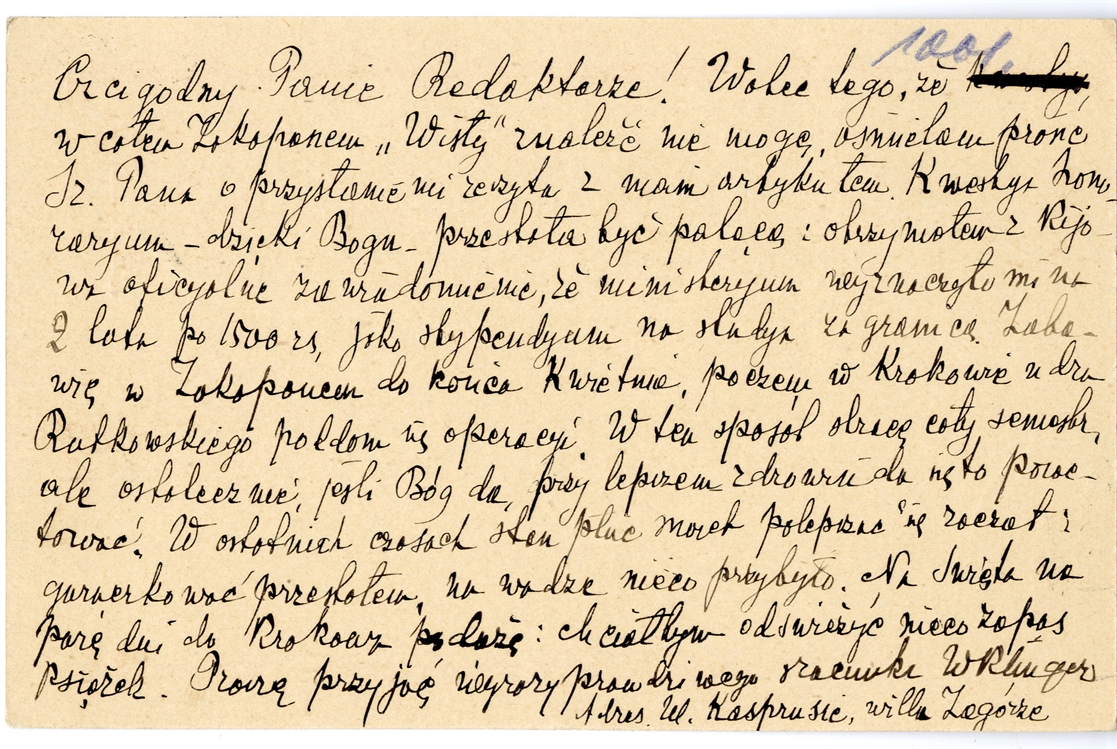 1001.
Czcigodny Panie Redaktorze! Wobec tego, że
w całem Zakopanem „Wisły" znaleźć nie mogę, ośmielam prosić
Sz. Pana o przysłanie mi zeszytu z moim artykułem. Kwestya hono-
raryum – dzięki Bogu – przestała być palącą: otrzymałem z Kijo-
wa oficyalne zawiadomienie, że ministeryum wyznaczyło mi na
2 lata po 1500 rs, jako stypendyum na studya za granicą. Zaba-
wię w Zakopanem do końca Kwietnia, poczem w Krakowie u dra
Rutkowskiego poddam się operacyi. W ten sposób stracę cały semestr,
ale ostatecznie, jeśli Bóg da, przy lepszem zdrowiu da się to powe-
tować. W ostatnich czasach stan płuc moich polepszać się zaczął:
gorączkować przestałem, na wadze nieco przybyło. Na Święta na
parę dni do Krakowa podążę: chciałbym odświeżyć nieco zapas
Książek. Proszę przyjąć wyrazy prawdziwego szacunku WKlinger
Adres. Ul. Kasprusie, willa Zagórze